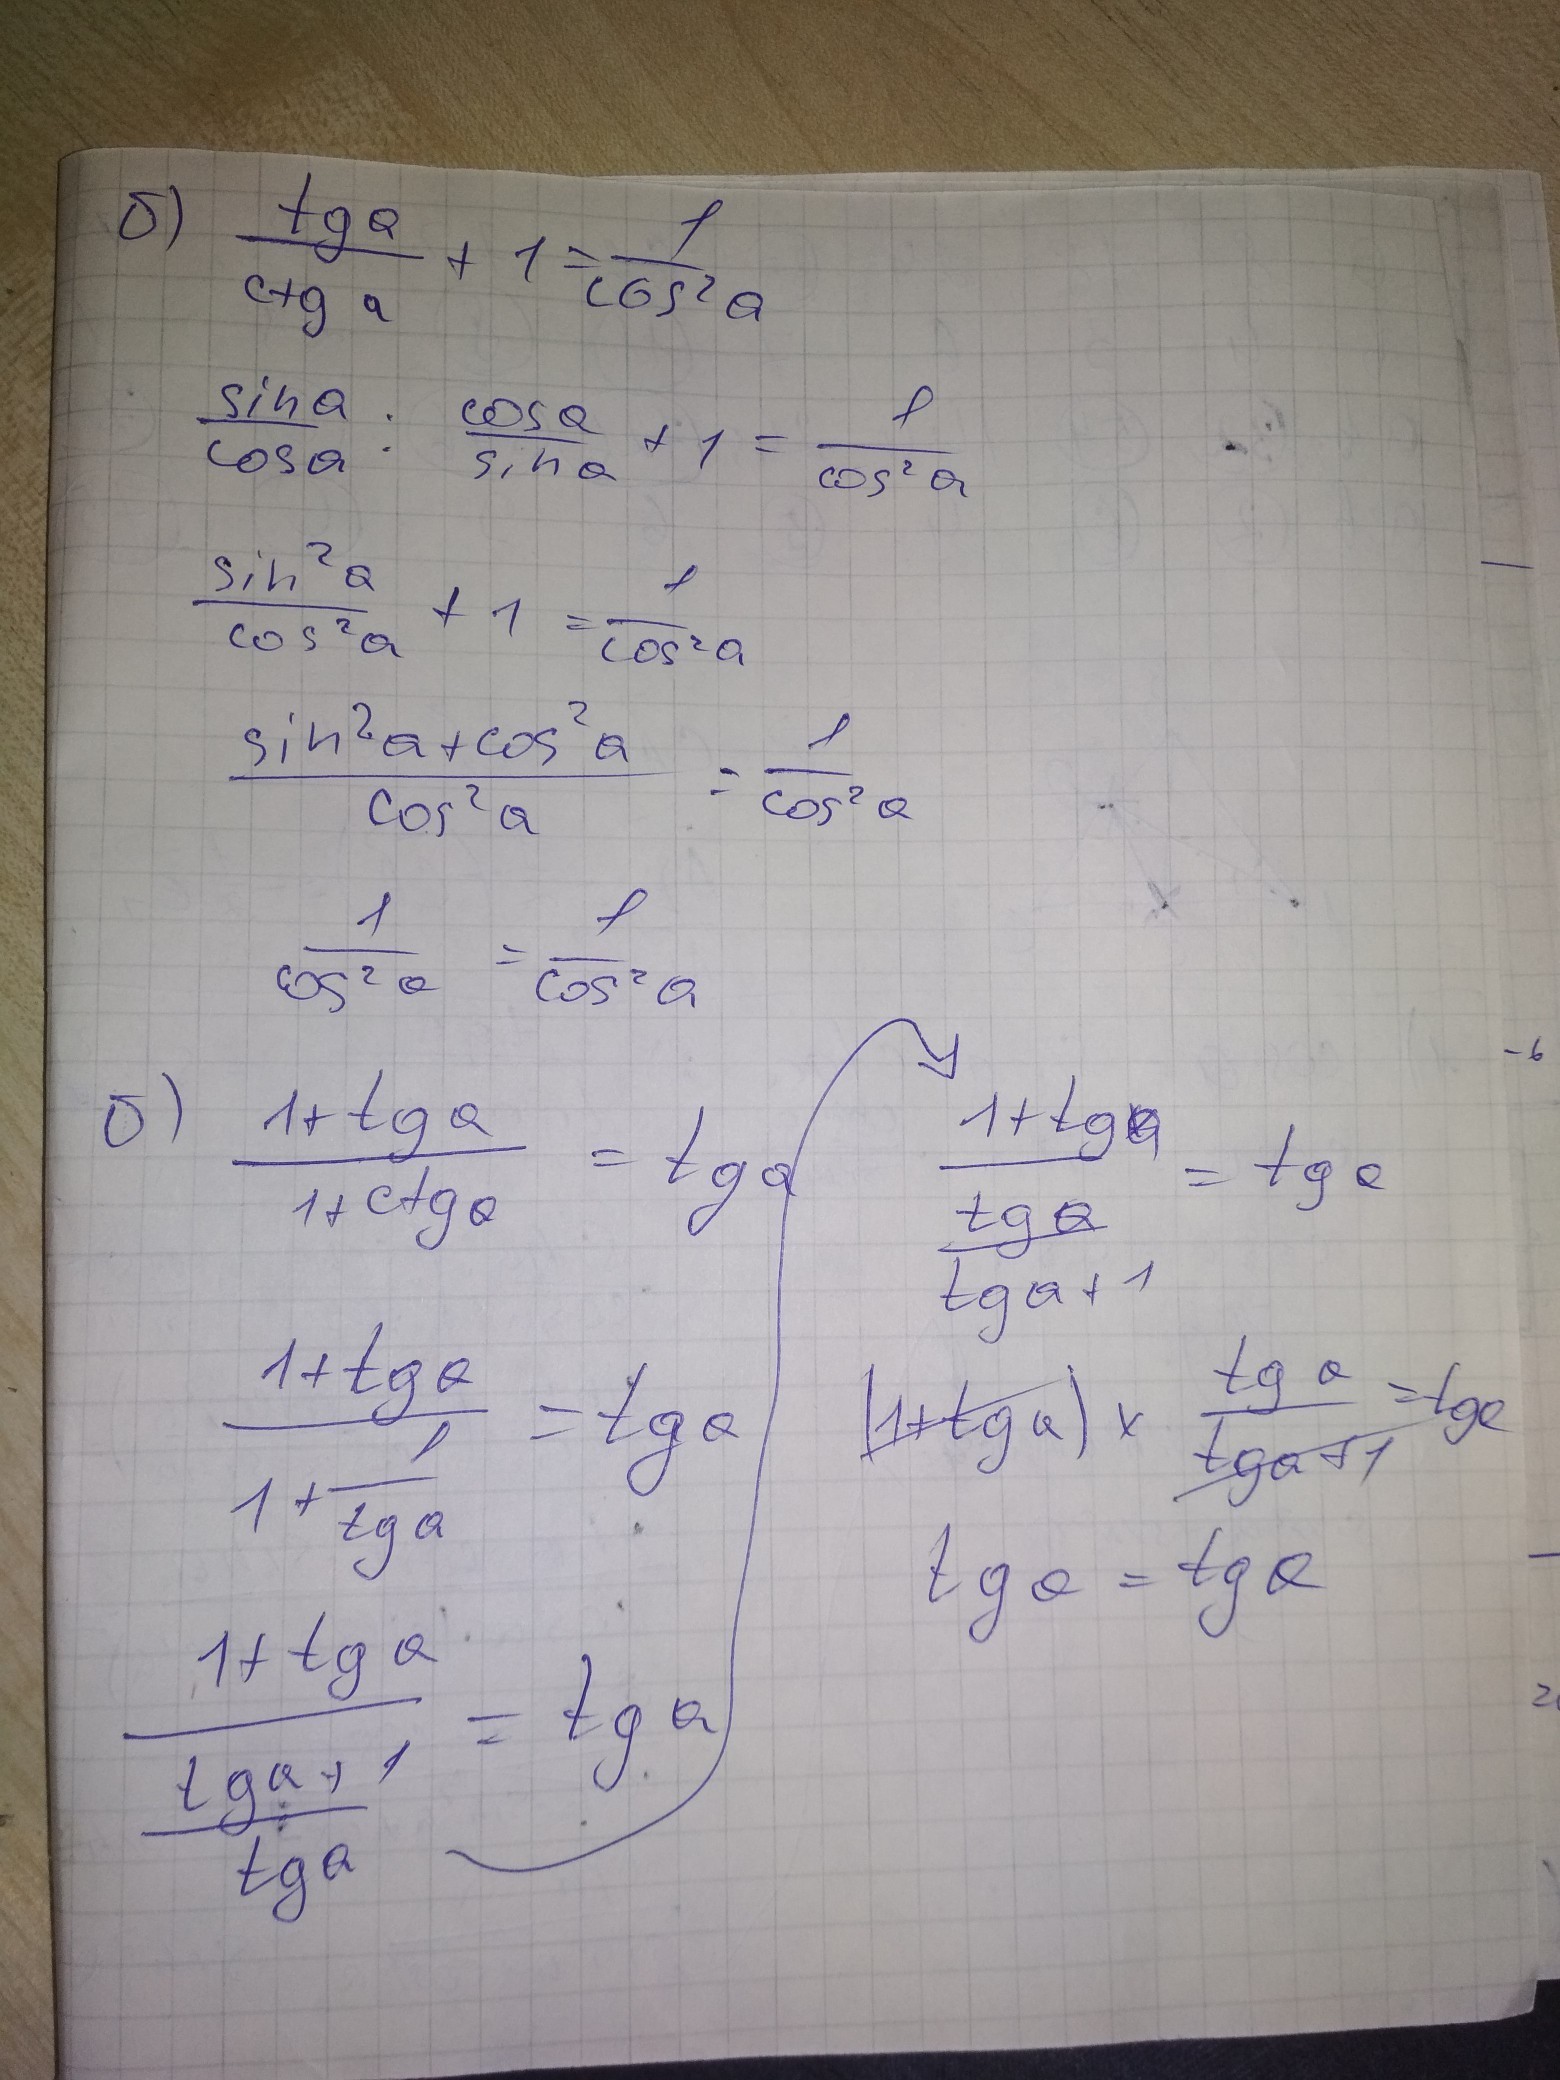 б) tg a / ctg a + 1 = 1 / cos² a
sin a / cos a : cos a / sin a + 1 = 1 / cos² a
sin² a / cos² a + 1 = 1 / cos² a
sin² a + cos² a / cos² a = 1 / cos² a
1 / cos² a = 1 / cos² a
б) 1 + tg a / 1 + ctg a = tg a
1 + tg a / 1 + 1 / tg a = tg a
1 + tg a / tg a + 1 / tg a = tg a
1 + tg a / tg a / tg a + 1 = tg a
(1 + tg a) × tg a / tg a + 1 = tg a
tg a = tg a
-6